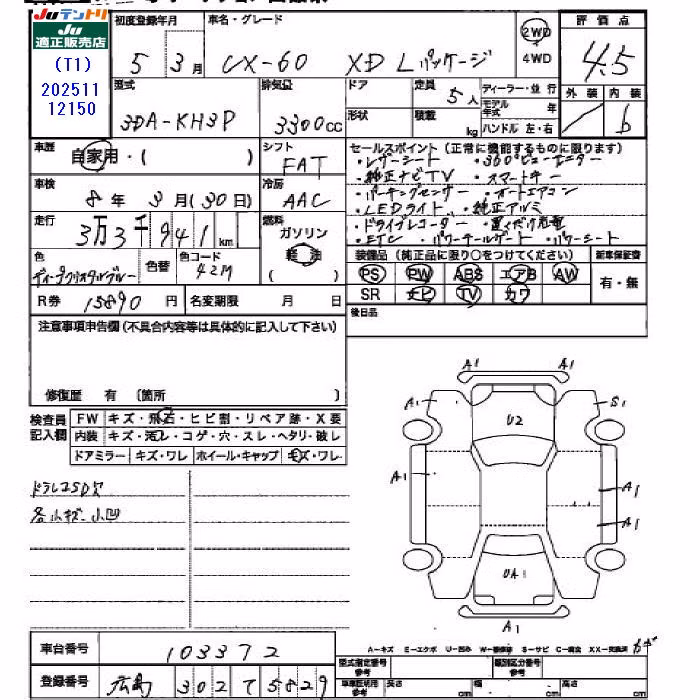 Juテントリ
Ju
適正販売店
(T1)
202511
12150
初度登録年月
5 3月
車名・グレード
CX-60 XD Lパッケージ
2WD
・
4WD
評価点
4.5
外装 内装
/ b
型式
3DA-KH3P
排気量
3300cc
ドア
形状
定員
5人
積載
kg
ディーラー・並行
モデル年式 年
ハンドル 左・右
車歴
自家用・( )
シフト
FAT
車検
8年 3月(30日)
冷房
AAC
走行
3万3千941km
燃料
ガソリン
軽油
( )
色
ディープクリスタルブルー
色替
色コード
42M
R券 15890円
名変期限 月 日
セールスポイント(正常に機能するものに限ります)
・レザーシート ・360°ビューモニター
・純正ナビTV ・スマートキー
・パーキングセンサー ・オートエアコン
・LEDライト ・純正アルミ
・ドライブレコーダー ・置くだけ充電
・ETC ・パワーテールゲート ・パワーシート
装備品(純正品に限り○をつけてください) 新車保証書
PS PW ABS エアB AW
SR ナビ TV カワ
有・無
後日品
注意事項申告欄(不具合内容等は具体的に記入して下さい)
修復歴 有 〔箇所 〕
検査員
記入欄
FW キズ・飛石・ヒビ割・リペア跡・X要
内装 キズ・汚レ・コゲ・穴・スレ・ヘタリ・破レ
ドアミラー キズ・ワレ ホイール・キャップ キズ・ワレ
ドラレコSD欠
各小キズ・小凹
A1 A1
A1 U2 S1
A1 A1
A1
UA1
A1
車台番号 103372
登録番号 広島 302 て 5829
A-キズ E-エクボ U-凹み W-補修跡 S-サビ C-腐食 XX-交換済
型式指定番号
参考
類別区分番号
参考
車庫証明用
参考
長さ cm 幅 cm 高さ cm